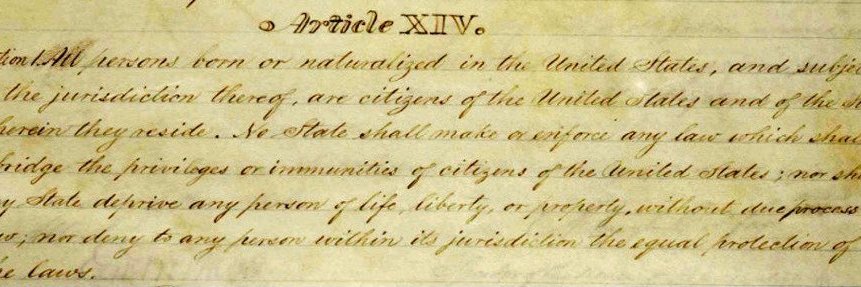 Article XIV.
tion 1. All persons born or naturalized in the United States, and subje
the jurisdiction thereof, are citizens of the United States and of the St
herein they reside. No State shall make or enforce any law which shal
bridge the privileges or immunities of citizens of the United States; nor sha
y State deprive any person of life, liberty, or property, without due process
w; nor deny to any person within its jurisdiction the equal protection of
he laws.